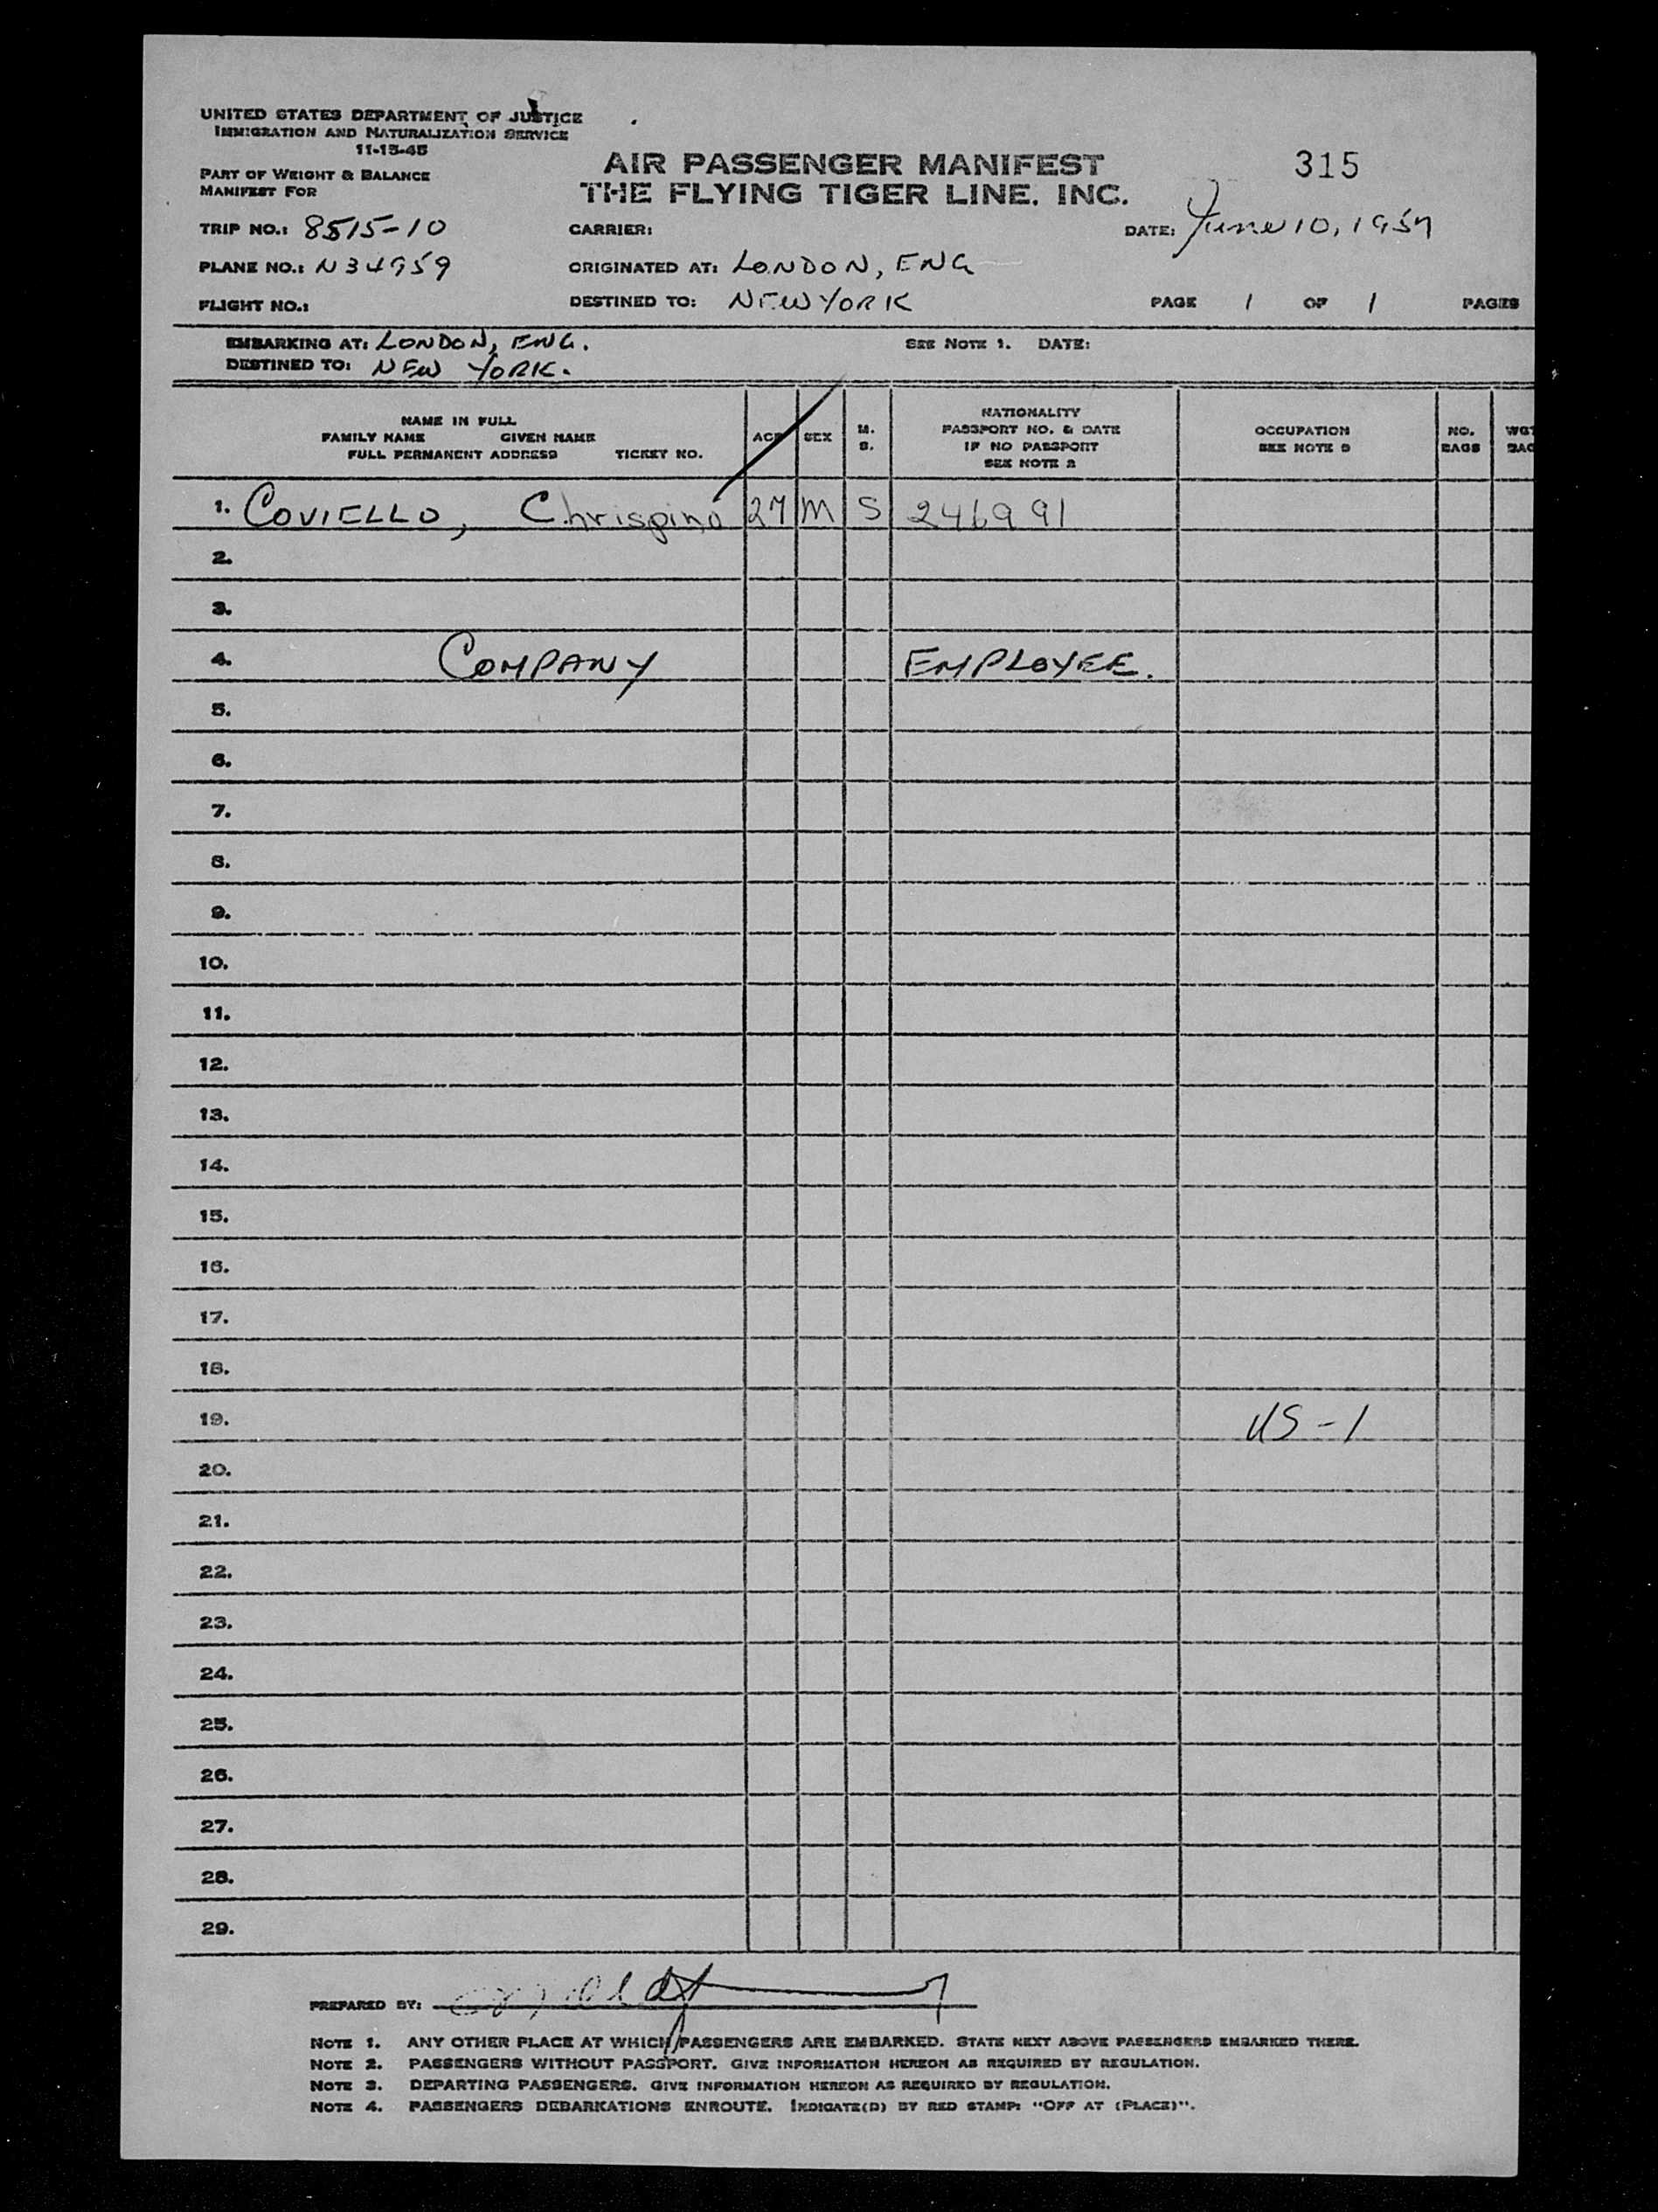 UNITED STATES DEPARTMENT OF JUSTICE
IMMIGRATION AND NATURALIZATION SERVICE
11-15-45
PART OF WEIGHT & BALANCE
MANIFEST FOR
AIR PASSENGER MANIFEST
THE FLYING TIGER LINE, INC.
315
TRIP NO.: 8515-10 CARRIER: DATE: June 10, 1957
PLANE NO.: N34959 ORIGINATED AT: LONDON, ENG
FLIGHT NO.: DESTINED TO: NEW YORK PAGE 1 OF 1 PAGES
EMBARKING AT: LONDON, ENG. SEE NOTE 1. DATE:
DESTINED TO: NEW YORK.
NAME IN FULL
FAMILY NAME GIVEN NAME
FULL PERMANENT ADDRESS TICKET NO.
AGE
SEX
M.
S.
NATIONALITY
PASSPORT NO. & DATE
IF NO PASSPORT
SEE NOTE 2
OCCUPATION
SEE NOTE 3
NO.
BAGS
WGT
BAG
1. COVIELLO, Chrispino 27 M S 246991
2.
3.
4. COMPANY EMPLOYEE.
5.
6.
7.
8.
9.
10.
11.
12.
13.
14.
15.
16.
17.
18.
19. US-1
20.
21.
22.
23.
24.
25.
26.
27.
28.
29.
PREPARED BY:
NOTE 1. ANY OTHER PLACE AT WHICH PASSENGERS ARE EMBARKED. STATE NEXT ABOVE PASSENGERS EMBARKED THERE.
NOTE 2. PASSENGERS WITHOUT PASSPORT. GIVE INFORMATION HEREON AS REQUIRED BY REGULATION.
NOTE 3. DEPARTING PASSENGERS. GIVE INFORMATION HEREON AS REQUIRED BY REGULATION.
NOTE 4. PASSENGERS DEBARKATIONS ENROUTE. INDICATE(D) BY RED STAMP: "OFF AT (PLACE)".